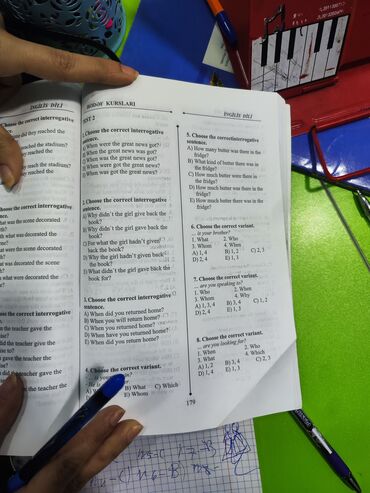 İNGİLİS DİLİ
the correct interrogative
did they reached the
reached the stadium?
reached the
reach the stadium?
reached the
Choose the correct interrogative
was the scene decorated
what was the decorated
were the scene decorated
was the decorated the
what were decorated the
the correct interrogative
the teacher gave
the teacher give the
the teacher gave
the teacher gave the
did the teacher the
HƏDƏF KURSLARI
İNGİLİS DİLİ
TEST 2
Choose the correct interrogative
sentence.
A) When were the great news got?
B) When the great news was got?
C) When was the great news got?
D) When were got the great news?
E) When was got the great news?
2. Choose the correct interrogative
sentence.
A) Why didn't the girl gave back the
book?
B) Why didn't the girl give back the
book?
C) For what the girl hadn't given
back the book?
D) Why the girl hadn't given back
the book?
E) What didn't the girl gave back the
book for?
3. Choose the correct interrogative
sentence.
A) When did you returned home?
B) When you will return home?
C) When you returned home?
D) When have you returned home?
E) When did you return home?
4. Choose the correct variant.
B) What C) Which
E) Whom
5. Choose the correctinterrogative
sentence.
A) How many butter was there in the
fridge?
B) What kind of butter there was in
the fridge?
C) How much butter were there in
the fridge?
D) How much butter was there in the
fridge?
E) How much butter there was in the
fridge?
6. Choose the correct variant.
... is your brother?
1. What 2. Who
3. Whom 4. When
A) 1, 4 B) 1, 2 C) 2, 3
D) 2, 4 E) 1, 3
7. Choose the correct variant.
... are you speaking to?
1. Who 2. When
3. Whom 4. Why
A) 1, 3, 4 B) 3, 4 C) 1, 2
D) 2, 4 E) 1, 3
8. Choose the correct variant.
... are you looking for?
1. When 2. Who
3. What 4. Which
A) 1, 2 B) 3, 4 C) 2, 3
D) 1, 4 E) 1, 3
179